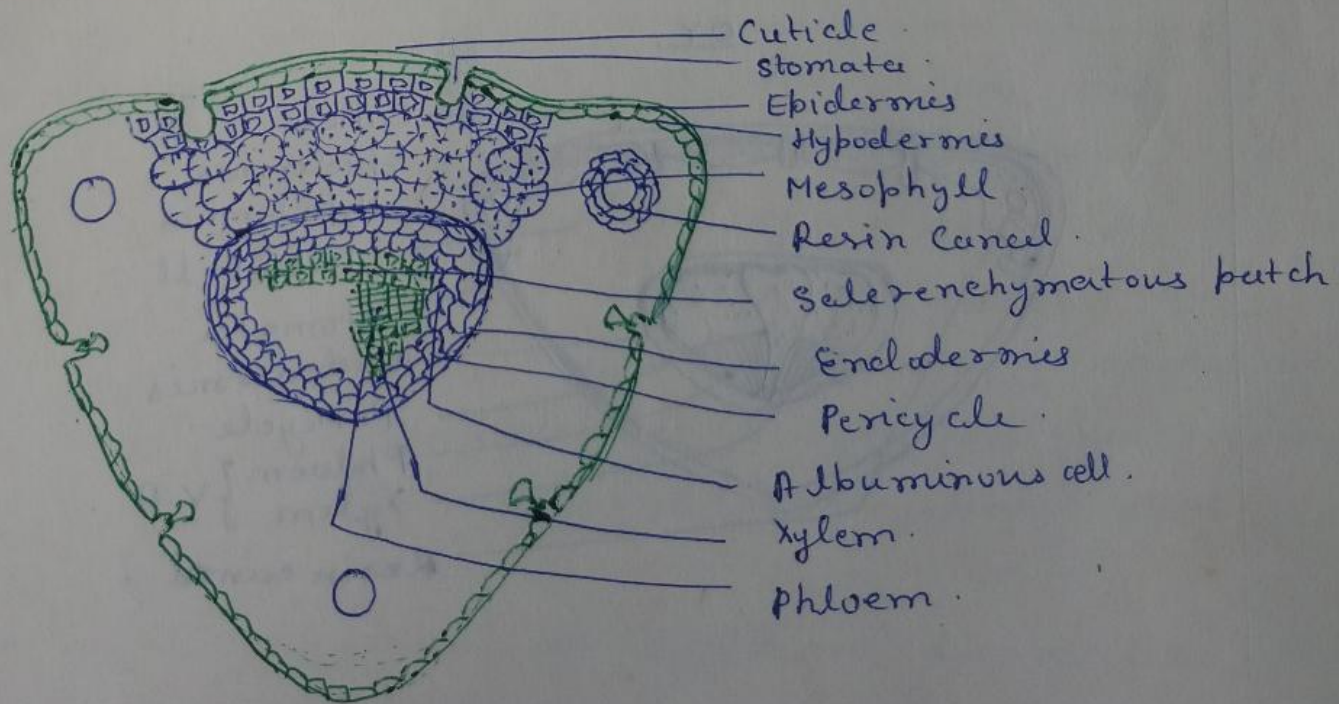 Cuticle.
Stomata.
Epidermis
Hypodermis
Mesophyll
Resin Canal.
Sclerenchymatous patch
Endodermis
Pericycle.
Albuminous cell.
Xylem.
Phloem.